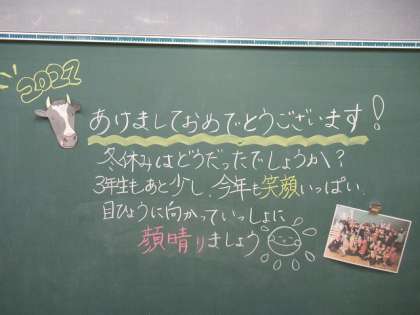 2021
あけましておめでとうございます！
冬休みはどうだったでしょうか？
3年生もあと少し、今年も笑顔いっぱい、
目ひょうに向かっていっしょに
顔晴りましょう